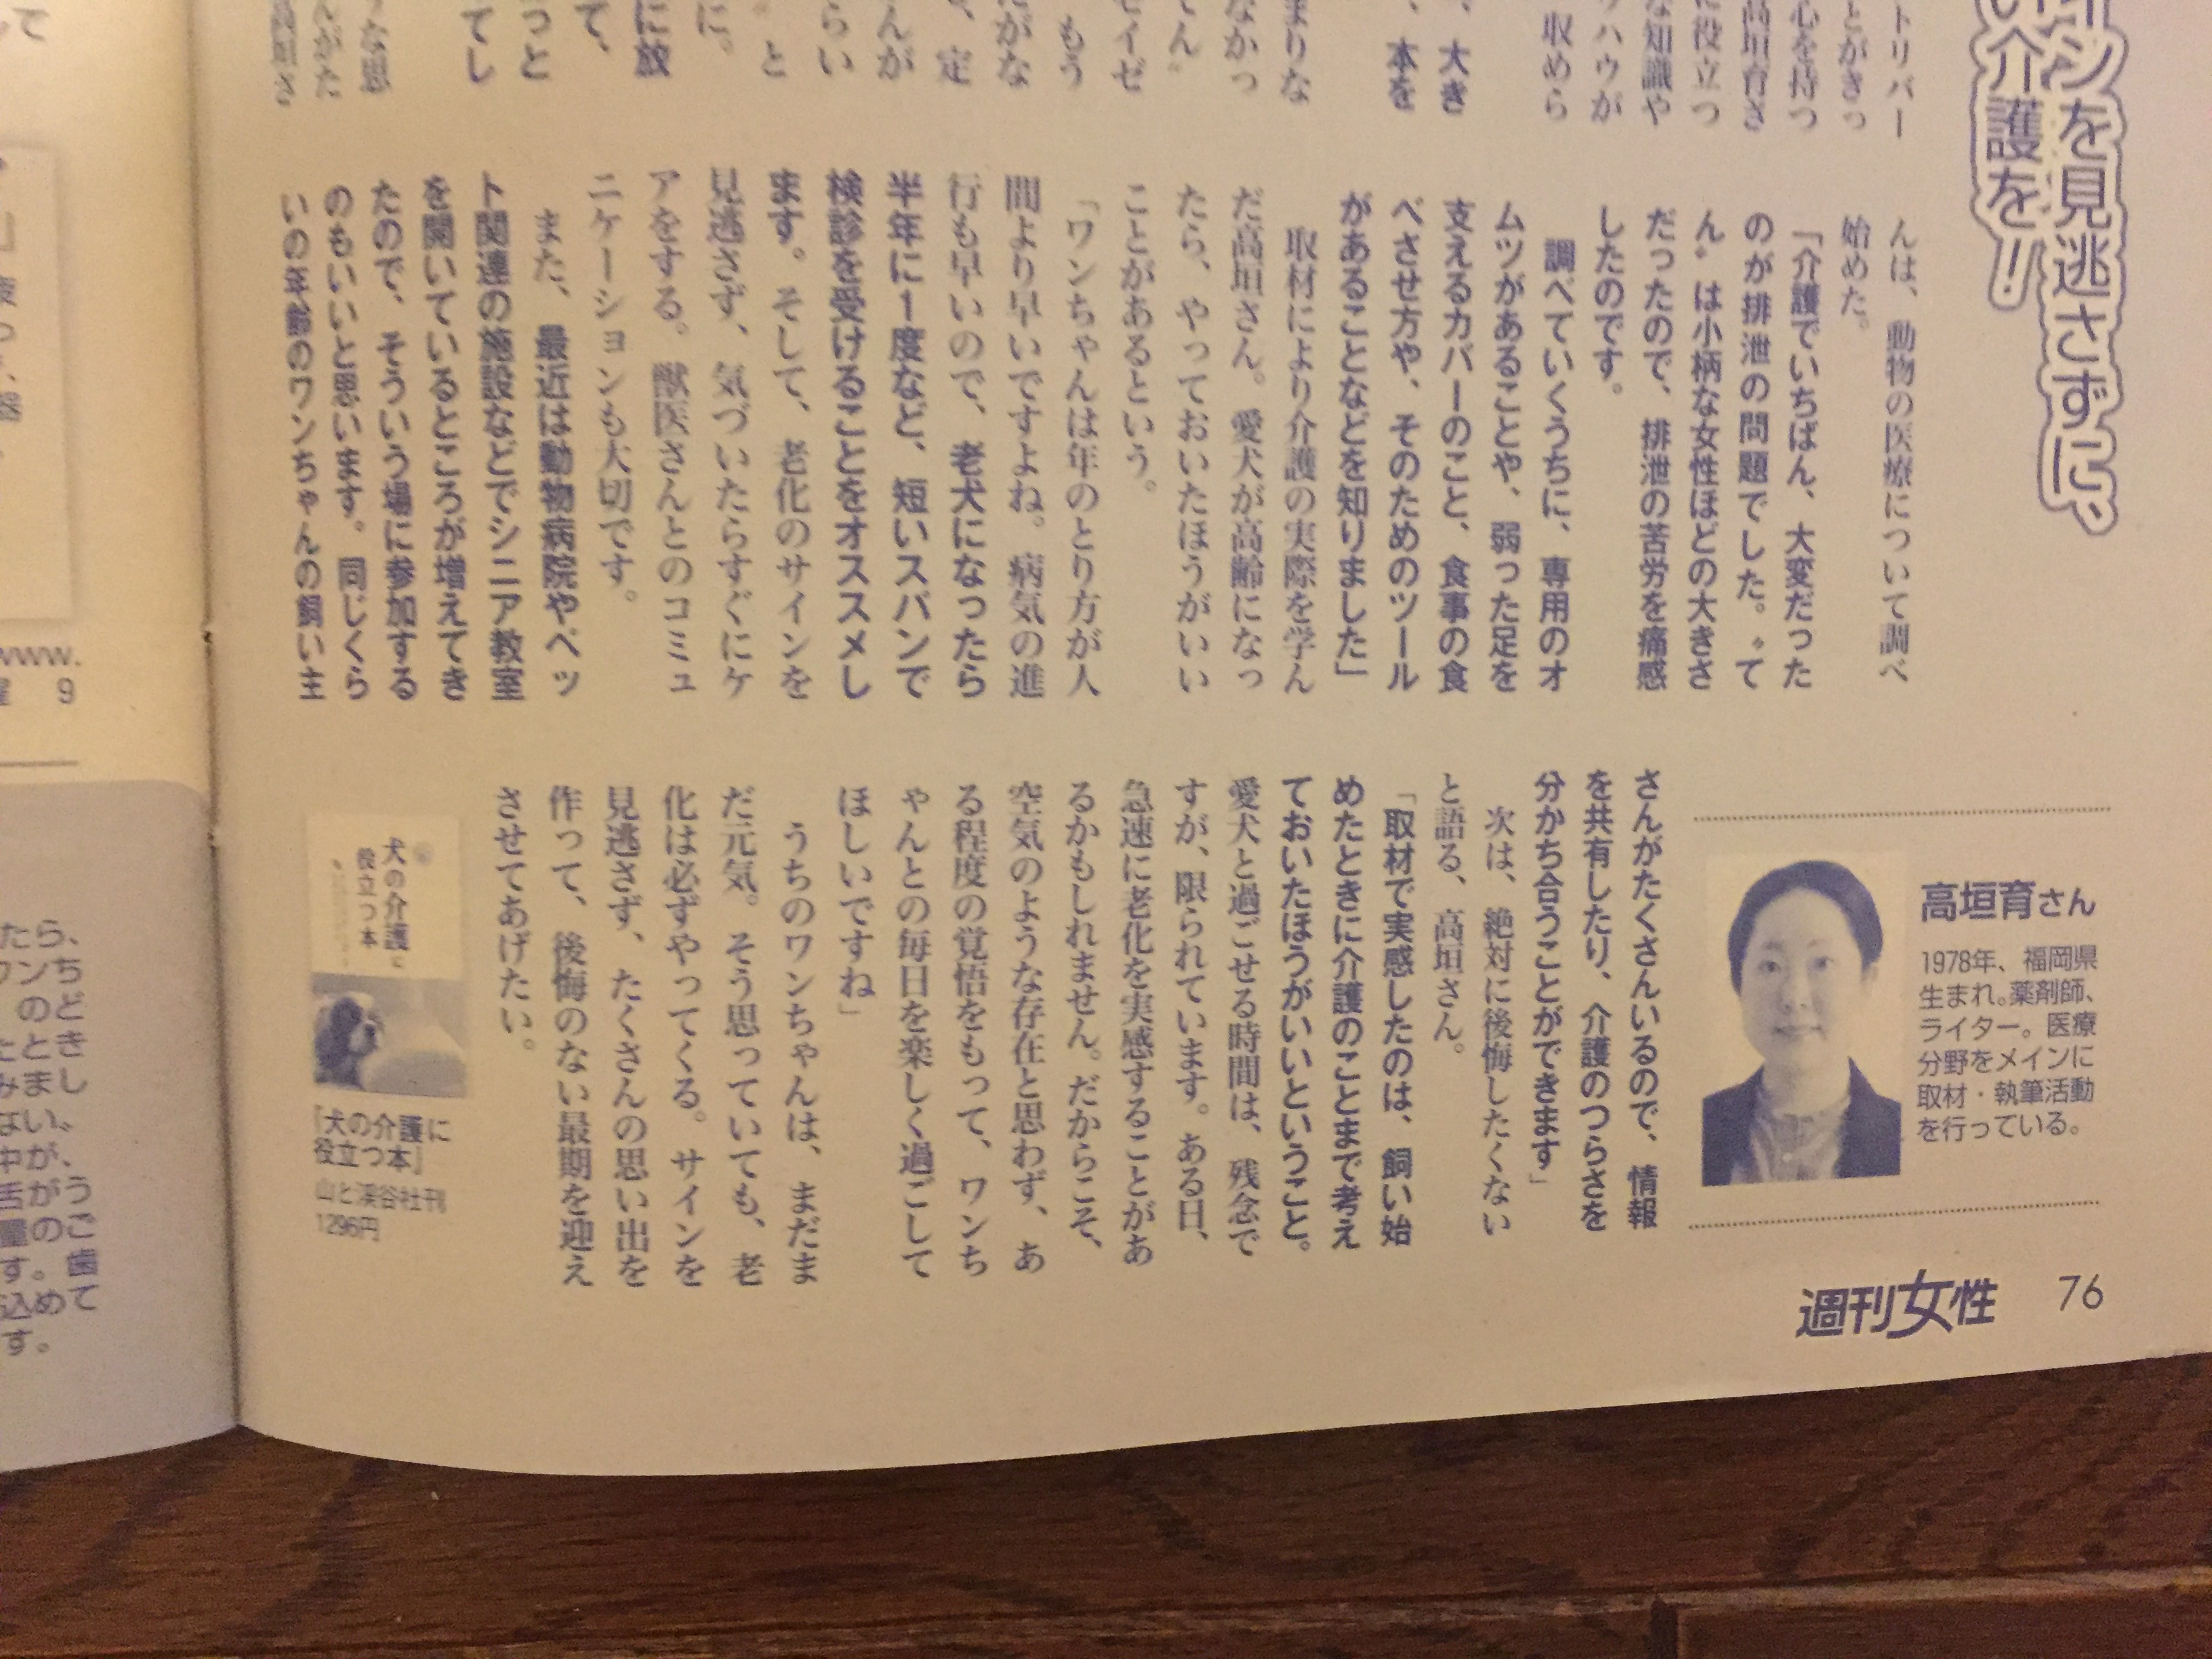 を見逃さずに。
介護を!!
トリバー
とがきっ
心を持つ
高垣育さ
に役立つ
な知識や
ハウが
収めら
、大き
、本を
まりな
なかっ
もう
、定
んが
らい
に。
に放
て、
っと
てし
な思
んがた
高垣さ
んは、動物の医療について調べ
始めた。
「介護でいちばん、大変だった
のが排泄の問題でした。〝て
ん〟は小柄な女性ほどの大きさ
だったので、排泄の苦労を痛感
したのです。
調べていくうちに、専用のオ
ムツがあることや、弱った足を
支えるカバーのこと、食事の食
べさせ方や、そのためのツール
があることなどを知りました」
取材により介護の実際を学ん
だ高垣さん。愛犬が高齢になっ
たら、やっておいたほうがいい
ことがあるという。
「ワンちゃんは年のとり方が人
間より早いですよね。病気の進
行も早いので、老犬になったら
半年に1度など、短いスパンで
検診を受けることをオススメし
ます。そして、老化のサインを
見逃さず、気づいたらすぐにケ
アをする。獣医さんとのコミュ
ニケーションも大切です。
また、最近は動物病院やペッ
ト関連の施設などでシニア教室
を開いているところが増えてき
たので、そういう場に参加する
のもいいと思います。同じくら
いの年齢のワンちゃんの飼い主
さんがたくさんいるので、情報
を共有したり、介護のつらさを
分かち合うことができます」
次は、絶対に後悔したくない
と語る、高垣さん。
「取材で実感したのは、飼い始
めたときに介護のことまで考え
ておいたほうがいいということ。
愛犬と過ごせる時間は、残念で
すが、限られています。ある日、
急速に老化を実感することがあ
るかもしれません。だからこそ、
空気のような存在と思わず、あ
る程度の覚悟をもって、ワンち
ゃんとの毎日を楽しく過ごして
ほしいですね」
うちのワンちゃんは、まだま
だ元気。そう思っていても、老
化は必ずやってくる。サインを
見逃さず、たくさんの思い出を
作って、後悔のない最期を迎え
させてあげたい。
高垣育さん
1978年、福岡県
生まれ。薬剤師、
ライター。医療
分野をメインに
取材・執筆活動
を行っている。
犬の介護に
役立つ本
『犬の介護に
役立つ本』
山と溪谷社刊
1296円
週刊女性 76
www.
9
たら、
ワンち
のど
たとき
みまし
ない、
中が、
舌がう
量のご
す。歯
込めて
す。